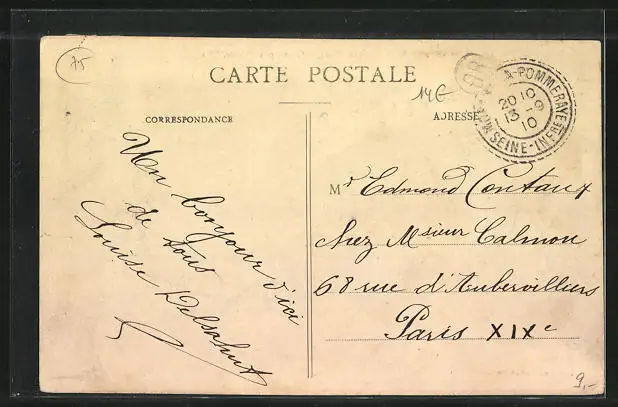 75
CARTE POSTALE
14E
CORRESPONDANCE
ADRESSE
A-POMMERAYE
20 10
13 - 9
10
SEINE-INFRE
Un bonjour d'ici
de tous
Louise
Mr Edmond Contaux
chez Msieur Calmon
68 rue d'Aubervilliers
Paris XIXe
9,-